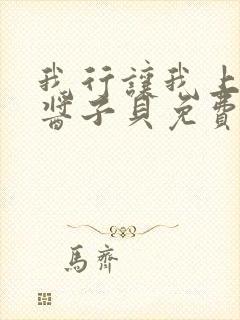 我行讓我上
醬子貝免費
馬齊